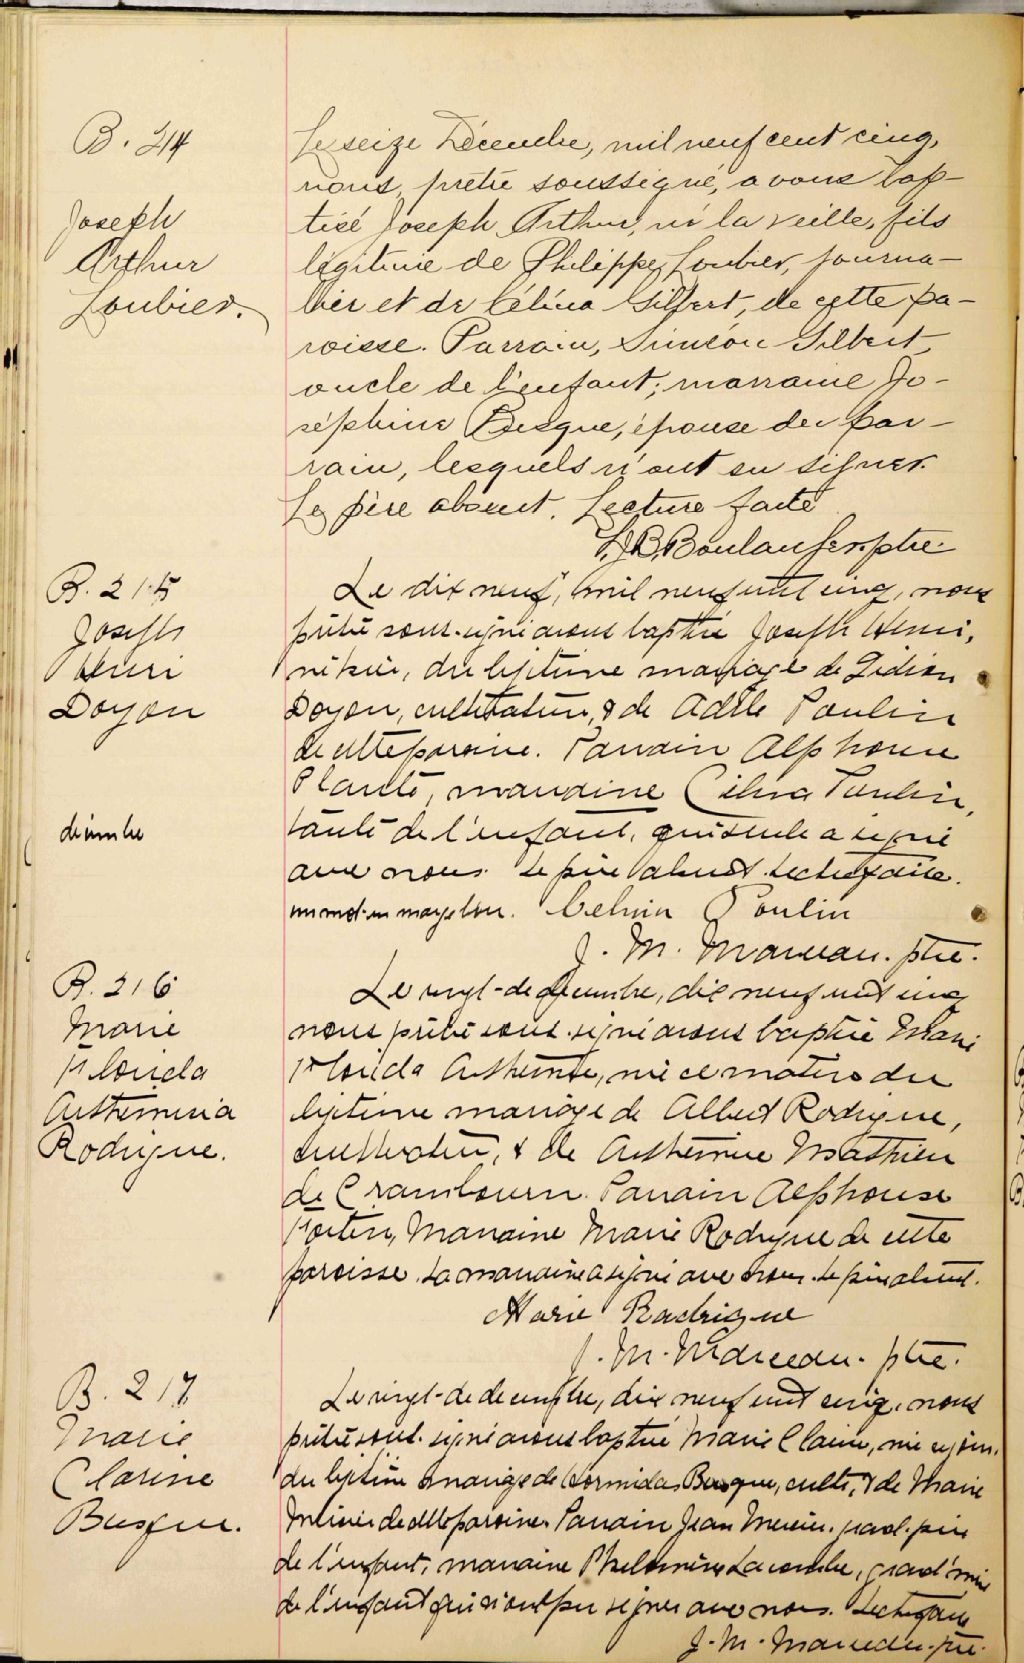 B. 214
Joseph
Arthur
Loubier.
Le seize Décembre, mil neuf cent cinq,
nous, prêtre soussigné, avons bap-
tisé Joseph Arthur, né la veille, fils
légitime de Philippe Loubier, journa-
lier et de Célina Gilbert, de cette pa-
roisse. Parrain, Siméon Gilbert,
oncle de l'enfant; marraine Jo-
séphine Busque, épouse du par-
rain, lesquels n'ont su signer.
Le père absent. Lecture faite
J.B. Boulanger ptre.
B. 215
Joseph
Henri
Doyon
décembre
Le dix neuf, mil neuf cent cinq, nous
prêtre sous-signé avons baptisé Joseph Henri,
né hier, du légitime mariage de Gédéon
Doyon, cultivateur, & de Adèle Poulin
de cette paroisse. Parrain Alphonse
Planté, marraine Célina Poulin,
tante de l'enfant, qui seule a signé
avec nous. Le père absent. Lecture faite.
un mot en marge bon. Celina Poulin
J. M. Marceau. ptre.
B. 216
Marie
Florida
Arthemisia
Rodrigue.
Le vingt-de décembre, dix neuf cent cinq
nous prêtre sous-signé avons baptisé Marie
Florida née ce matin du
légitime mariage de Albert Rodrigue,
cultivateur, & de Arthemise Mathieu
de Cranbourn. Parrain Alphonse
Fortin, Marraine Marie Rodrigue de cette
paroisse. La marraine a signé avec nous. Le père absent.
Marie Rodrigue
J. M. Marceau. ptre.
B. 217
Marie
Clarine
Busque.
Le vingt-de décembre, dix neuf cent cinq, nous
prêtre sous-signé avons baptisé Marie née ce jour
du légitime mariage de Hormidas Busque, cult., & de Marie
Mercier de cette paroisse. Parrain Jean Mercier, grand-père
de l'enfant, marraine Philomène Lacombe, grand'mère
de l'enfant qui n'ont pu signer avec nous. Lecture faite
J. M. Marceau. ptre.